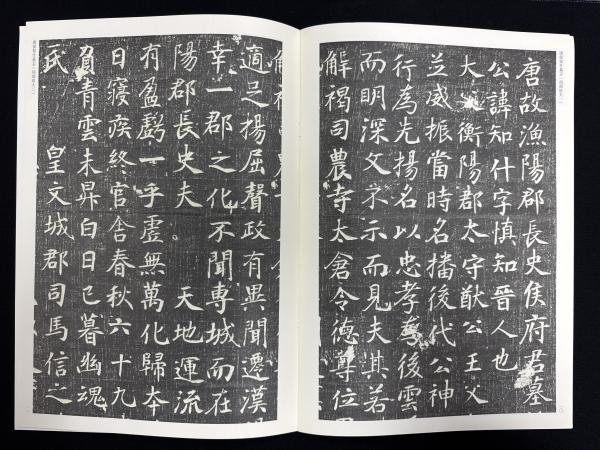 唐故漁陽郡長史侯府君墓
公諱知什字慎知晉人也
大衡陽郡太守猷公王父
並威振當時名播後代公神
行為先揚名以忠孝後雲
而明深文不示而見夫其若
解褐司農寺太倉令德尊位
適足揚屈聲政有異聞遷漢
幸一郡之化不聞專城而在
陽郡長史夫。天地運流
有盈虧一乎虛無萬化歸本
日寢疾終官舍春秋六十九
負青雲未昇白日已暮幽魂
氏 皇文城郡司馬信之